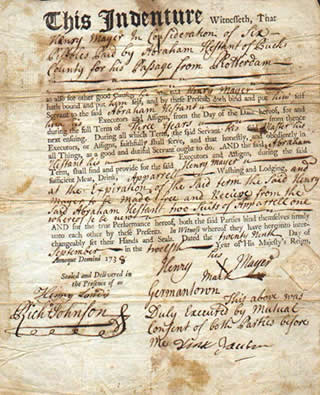 This Indenture Witnesseth, That
Henry Mayer in Consideration of Six
Pistoles Paid by Abraham Hestant of Bucks
County for his Passage from Rotterdam
as also for other good Causes he the said Henry Mayer
hath bound and put himself, and by these Presents doth bind and put himself
Servant to the said Abraham Hestant
his Executors and Assigns, from the Day of the Date hereof, for and
during the full Term of Three Years from thence
next ensuing. During all which Term, the said Servant his said Master his
Executors, or Assigns, faithfully shall serve, and that honestly and obediently in
all Things, as a good and dutiful Servant ought to do. AND the said Abraham
Hestant his Executors and Assigns, during the said
Term, shall find and provide for the said Henry Mayer
sufficient Meat, Drink, Apparel, Washing and Lodging, and
at the Expiration of the said term the said Henry
Mayer to be made free and Receive from the
Said Abraham Hestant two Suits of Apparrell one
whereof to be new
AND for the true Performance hereof, both the said Parties bind themselves firmly
unto each other by these Presents. In Witness whereof they have hereunto inter-
changeably set their Hands and Seals. Dated the Day of
September in the twelfth Year of His Majesty's Reign,
Annoque Domini 1738
Henry his Mayer
Mark
Sealed and Delivered
in the Presence of us
Germantown
Henry
Rich Johnson
This above was
Duly Executed by Mutual
Consent of both the Parties before
me